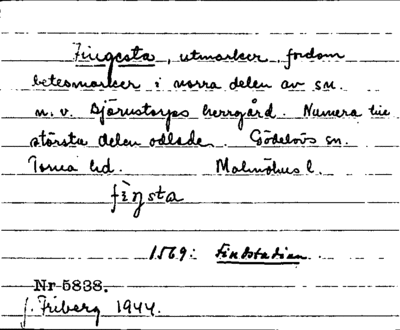 Fingesta, utmarker, fordom
betesmarker i norra delen av sn.
n. v. Björnstorps herrgård. Numera till
största delen odlade. Gödelövs sn.
Torna hd. Malmöhus l.
1569:
Nr 5838.
J. Friberg 1944.